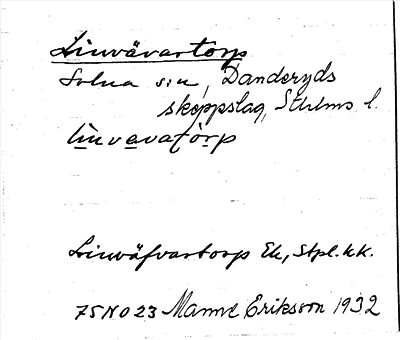 Linvävartorp
Solna sn, Danderyds
skeppslag, Sthlms l.
linvavatorp
Linwäfvartorp Ek, Stpl. kk.
75NO23 Manne Eriksson 1932